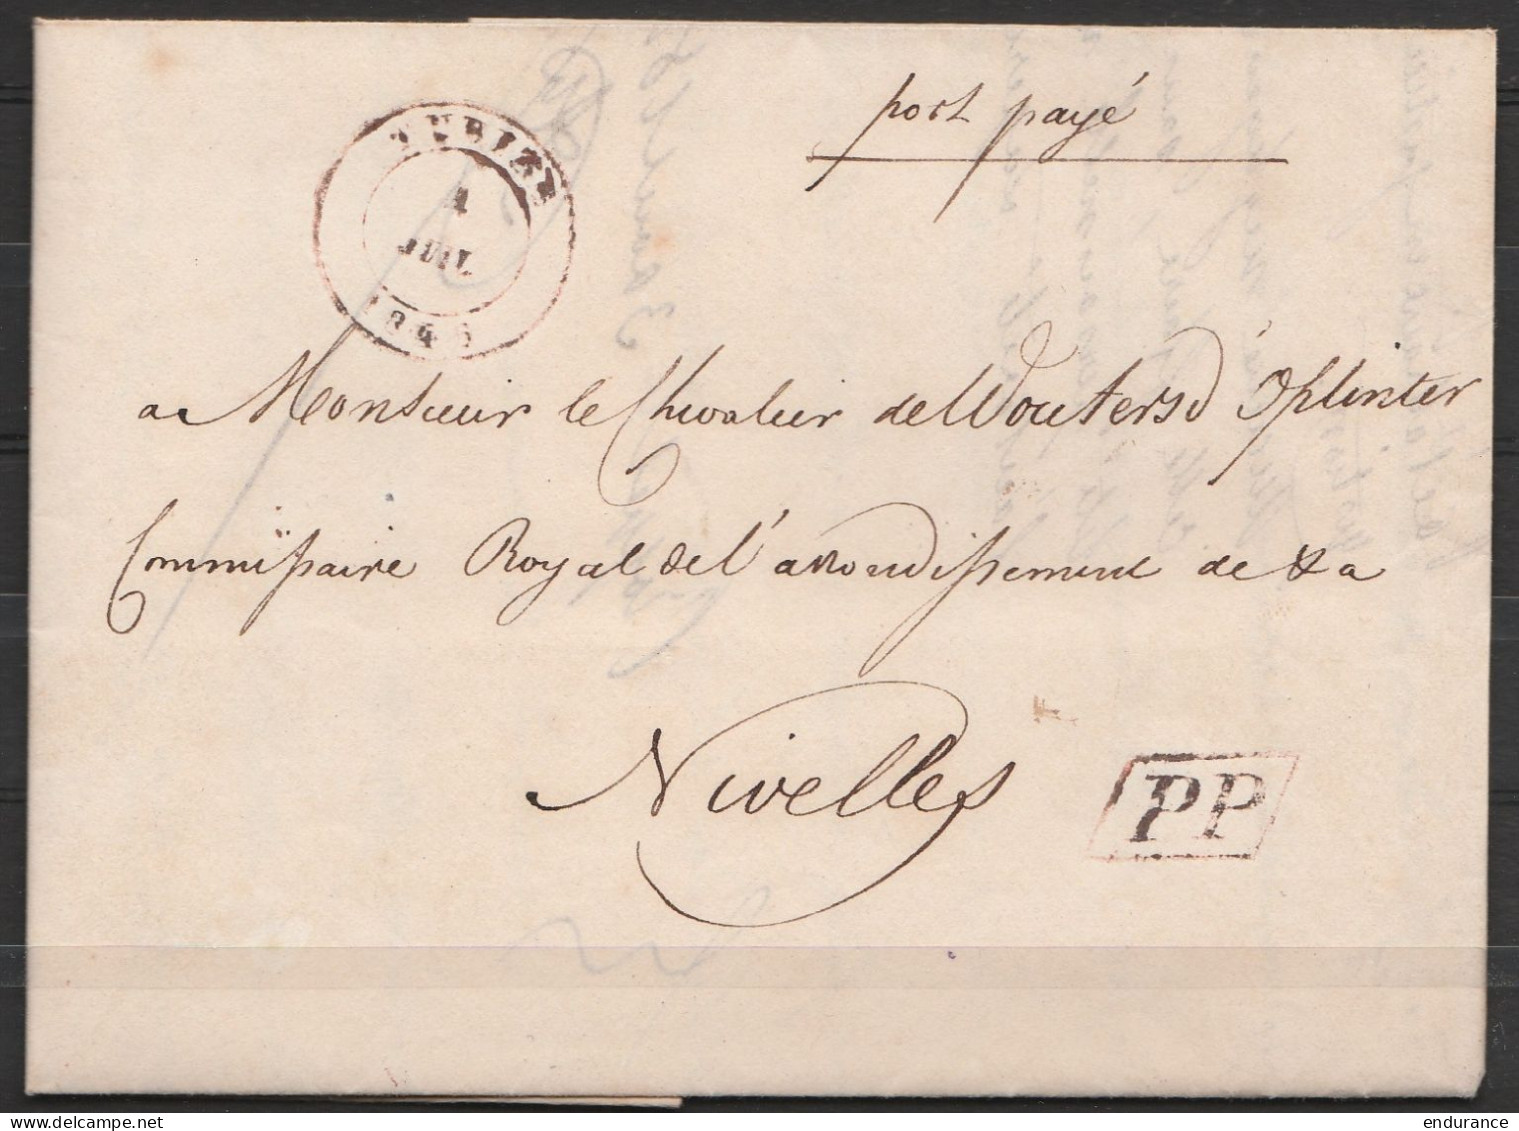 port payé
TUBIZE
1
JUIL
184
a Monsieur le Chevalier de Wouters d'Oplinter
Commissaire Royal de l'arrondissement de & a
Nivelles
PP
endurance